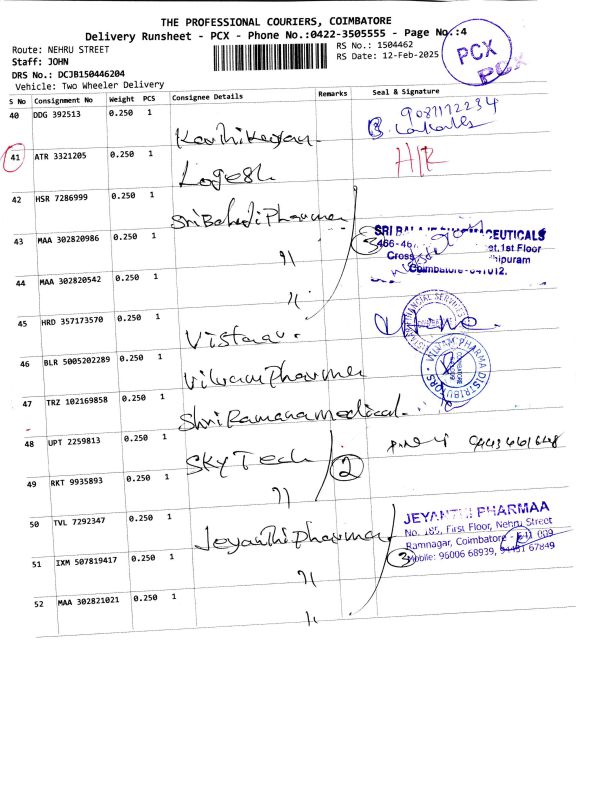 THE PROFESSIONAL COURIERS, COIMBATORE
Delivery Runsheet - PCX - Phone No.:0422-3505555 - Page No.:4
Route: NEHRU STREET
RS No.: 1504462
Staff: JOHN
RS Date: 12-Feb-2025
DRS No.: DCJB150446204
Vehicle: Two Wheeler Delivery
PCX
PCX
S No Consignment No Weight PCS Consignee Details Remarks Seal & Signature
40 DDG 392513 0.250 1 Karthikeyan 9087172234
41 ATR 3321205 0.250 1 Logesh H/R
42 HSR 7286999 0.250 1 Sri Balaji Pharma
43 MAA 302820986 0.250 1 " 3
SRI BALAJI PHARMACEUTICALS
1st Floor
Cross
Coimbatore - 641012.
44 MAA 302820542 0.250 1 "
45 HRD 357173570 0.250 1 Vistaar
FINANCIAL SERVICES
46 BLR 5005202289 0.250 1 Vilvam Pharma
VILVAM PHARMA DISTRIBUTORS
47 TRZ 102169858 0.250 1 Shri Ramana Medical
48 UPT 2259813 0.250 1 Sky Tech 2
49 RKT 9935893 0.250 1 "
50 TVL 7292347 0.250 1 Jeyanthi Pharma
JEYANTHI PHARMAA
No. 185, First Floor, Nehru Street
Ramnagar, Coimbatore - 641 009
Mobile: 96006 68939, 94431 67849
51 IXM 507819417 0.250 1 " 3
52 MAA 302821021 0.250 1 "